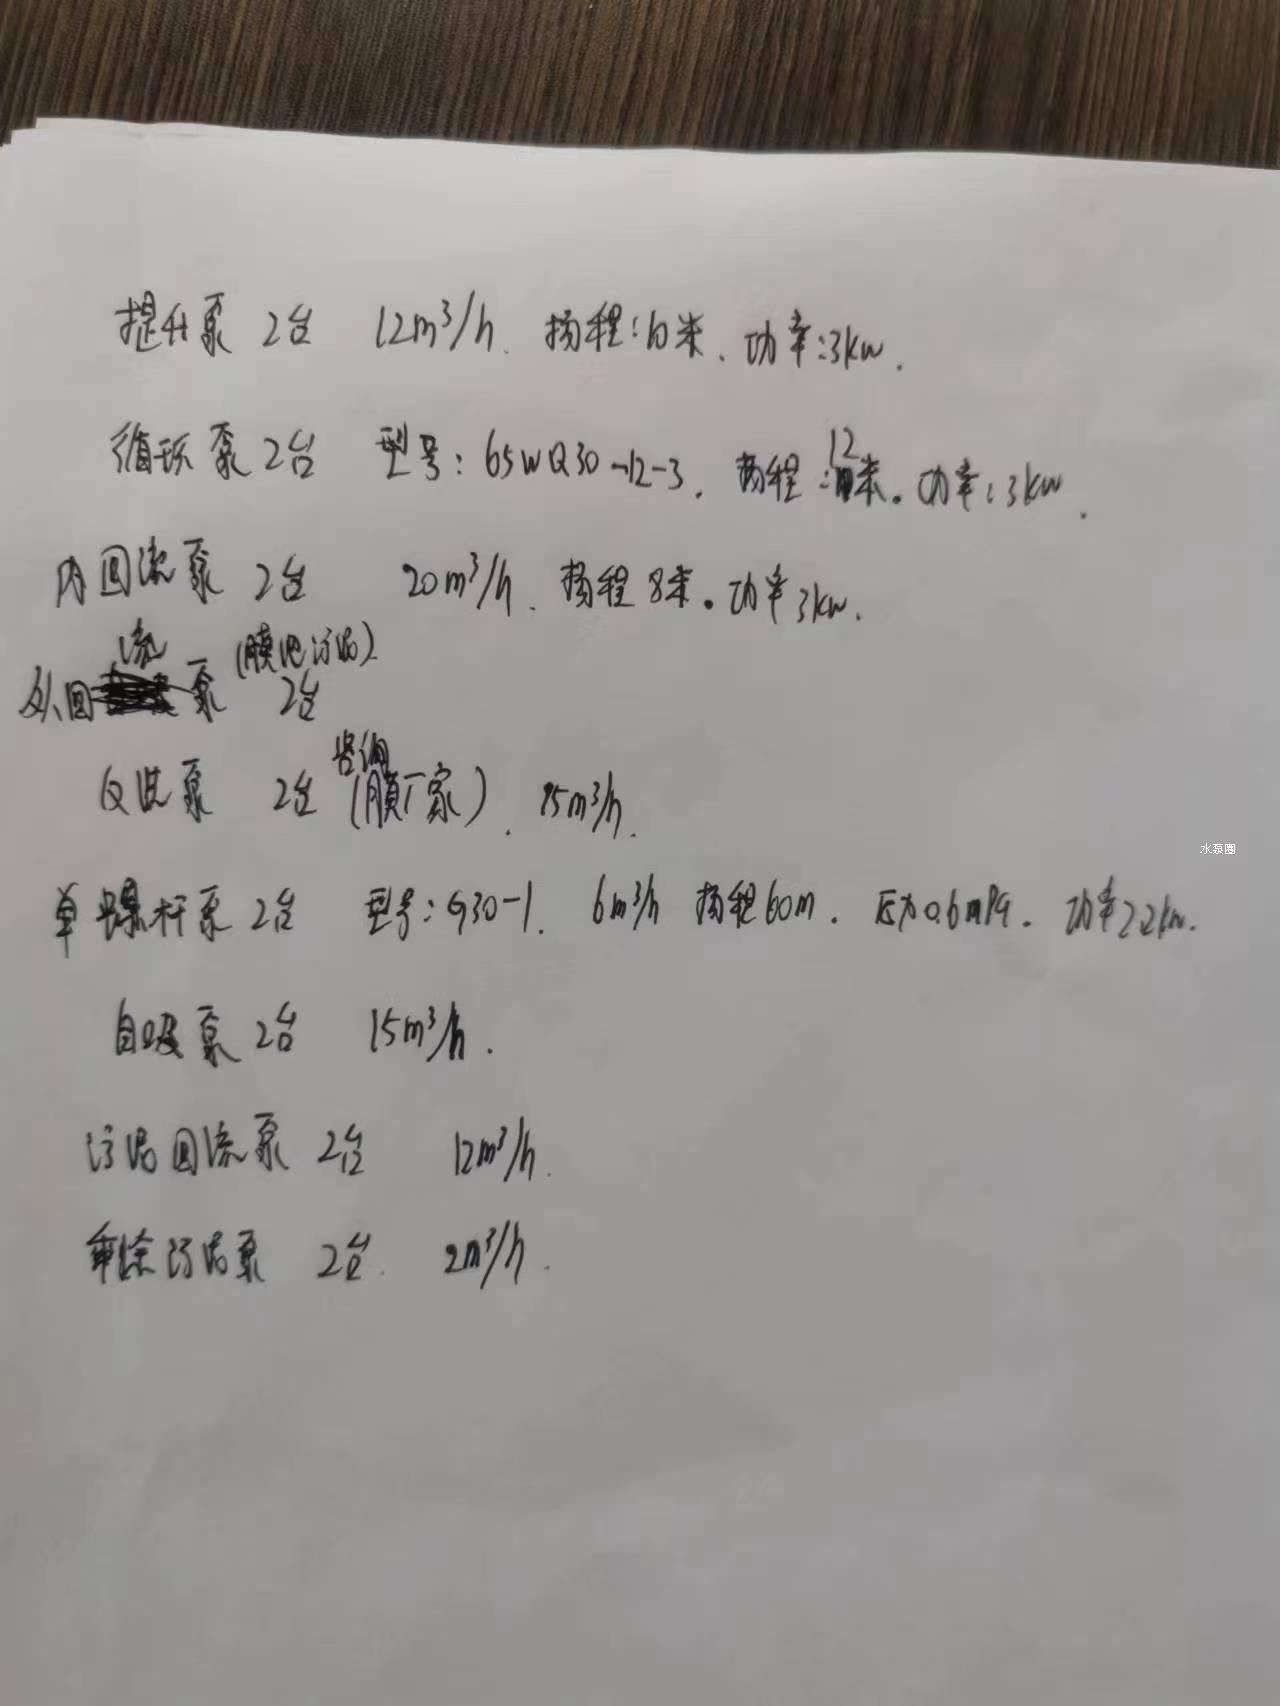 提升泵 2台 12m³/h. 扬程:10米. 功率:3kw.
循环泵 2台 型号:65WQ30-12-3. 扬程:12米. 功率:3kw.
内回流泵 2台 20m³/h. 扬程8米. 功率3kw.
外回流泵 (膜池污泥) 2台
反洗泵 2台 (咨询膜厂家). m³/h.
单螺杆泵 2台 型号:G30-1. 6m³/h 扬程60m. 压力0.6mPa. 功率2.2kw.
自吸泵 2台 15m³/h.
污泥回流泵 2台 12m³/h.
剩余污泥泵 2台. 2m³/h.
水泵圈